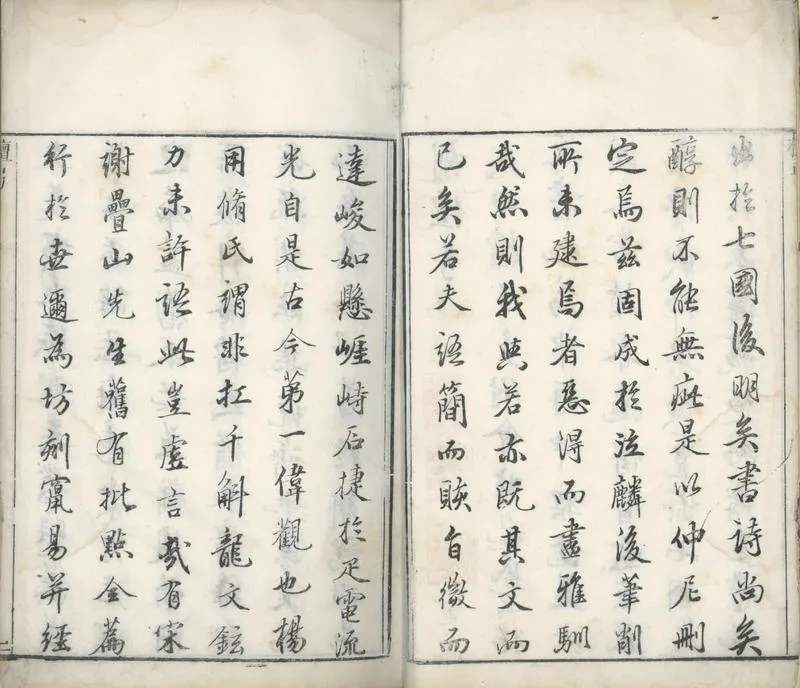 出於七國後明矣書詩尚矣
醇則不能無疵是以仲尼刪
定焉茲固成於泣麟後筆削
所未建焉者惡得而盡雅馴
哉然則我與若亦既其文而
已矣若夫語簡而賅旨微而
達峻如懸崖峙石捷於疋電流
光自是古今第一偉觀也楊
用脩氏謂非扛千斛龍文鉉
力未許語此豈虛言哉有宋
謝疊山先生舊有批點全篇
行於世邇為坊刻竄易并經